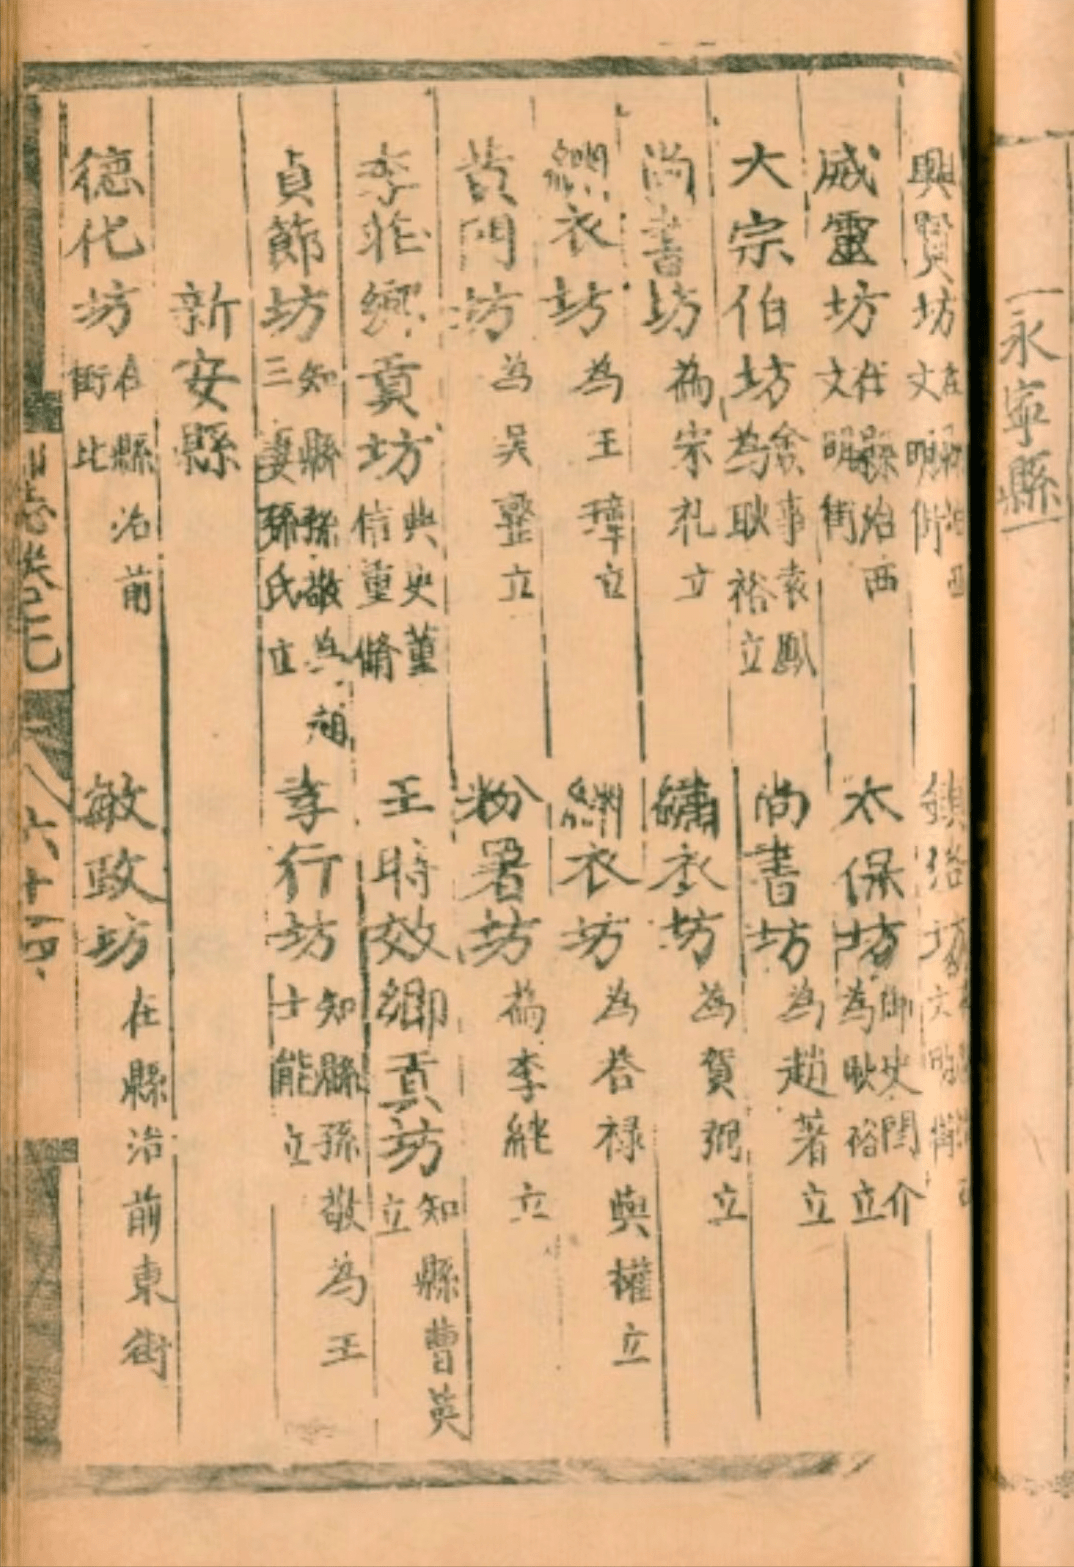 永寧縣
興賢坊在縣治西文明街 鎖 坊 文明街
威靈坊在縣治西文明街 太保坊御史閆介為耿裕立
大宗伯坊僉事袁鳳為耿裕立 尚書坊為趙著立
尚書坊為宋礼立 繡衣坊為賀 立
衣坊為王璋立 衣坊為 禄與權立
黄門坊為吴 立 粉署坊為李 立
李 鄉貢坊典史董信重脩 王時效鄉貢坊知縣曹英立
貞節坊知縣孫敬為趙三妻孫氏立 孝行坊知縣孫敬為王士能立
新安縣
德化坊在縣治前街比 敏政坊在縣治前東街
志 七 六十四